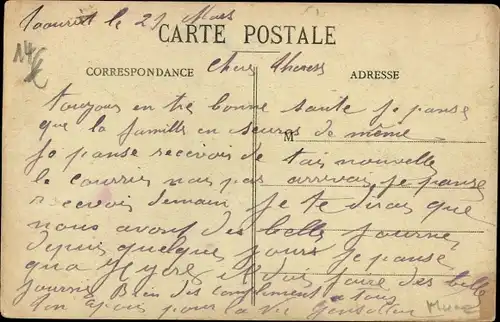 Taourirt le 21 Mars
CARTE POSTALE
CORRESPONDANCE
ADRESSE
Toujours en tre bonne sante Je panse
que la famille en seuras de même
M
Je panse recevoir de tais nouvelle
le courrier nais pas arrivais Je panse
recevoir demain Je te dirais que
nous avont des belle journe
depuis quelque jours Je panse
qua Hyere il dois faire des belle
journe Bien des compliment a tous
ton pour la vie